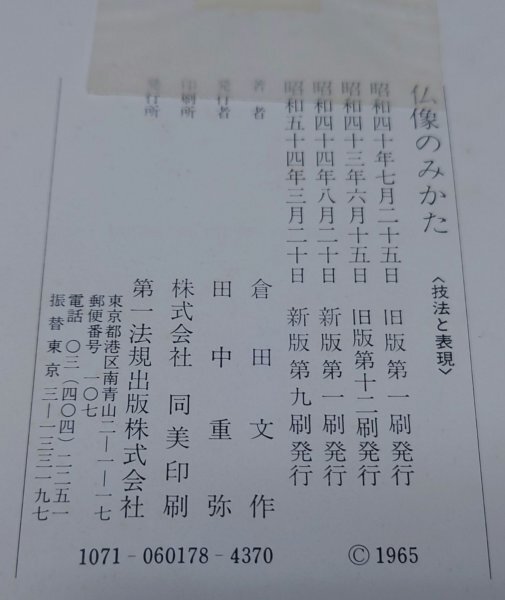 仏像のみかた 〈技法と表現〉
昭和四十年七月二十五日 旧版第一刷発行
昭和四十三年六月十五日 旧版第十二刷発行
昭和四十四年八月二十日 新版第一刷発行
昭和五十四年三月二十日 新版第九刷発行
著者 倉田文作
発行者 田中重弥
印刷所 株式会社 同美印刷
発行所 第一法規出版株式会社
東京都港区南青山二ー一一ー一七
郵便番号 一〇七
電話 〇三(四〇四)二二五一
振替東京 三ー一三三一九七
1071-060178-4370 © 1965